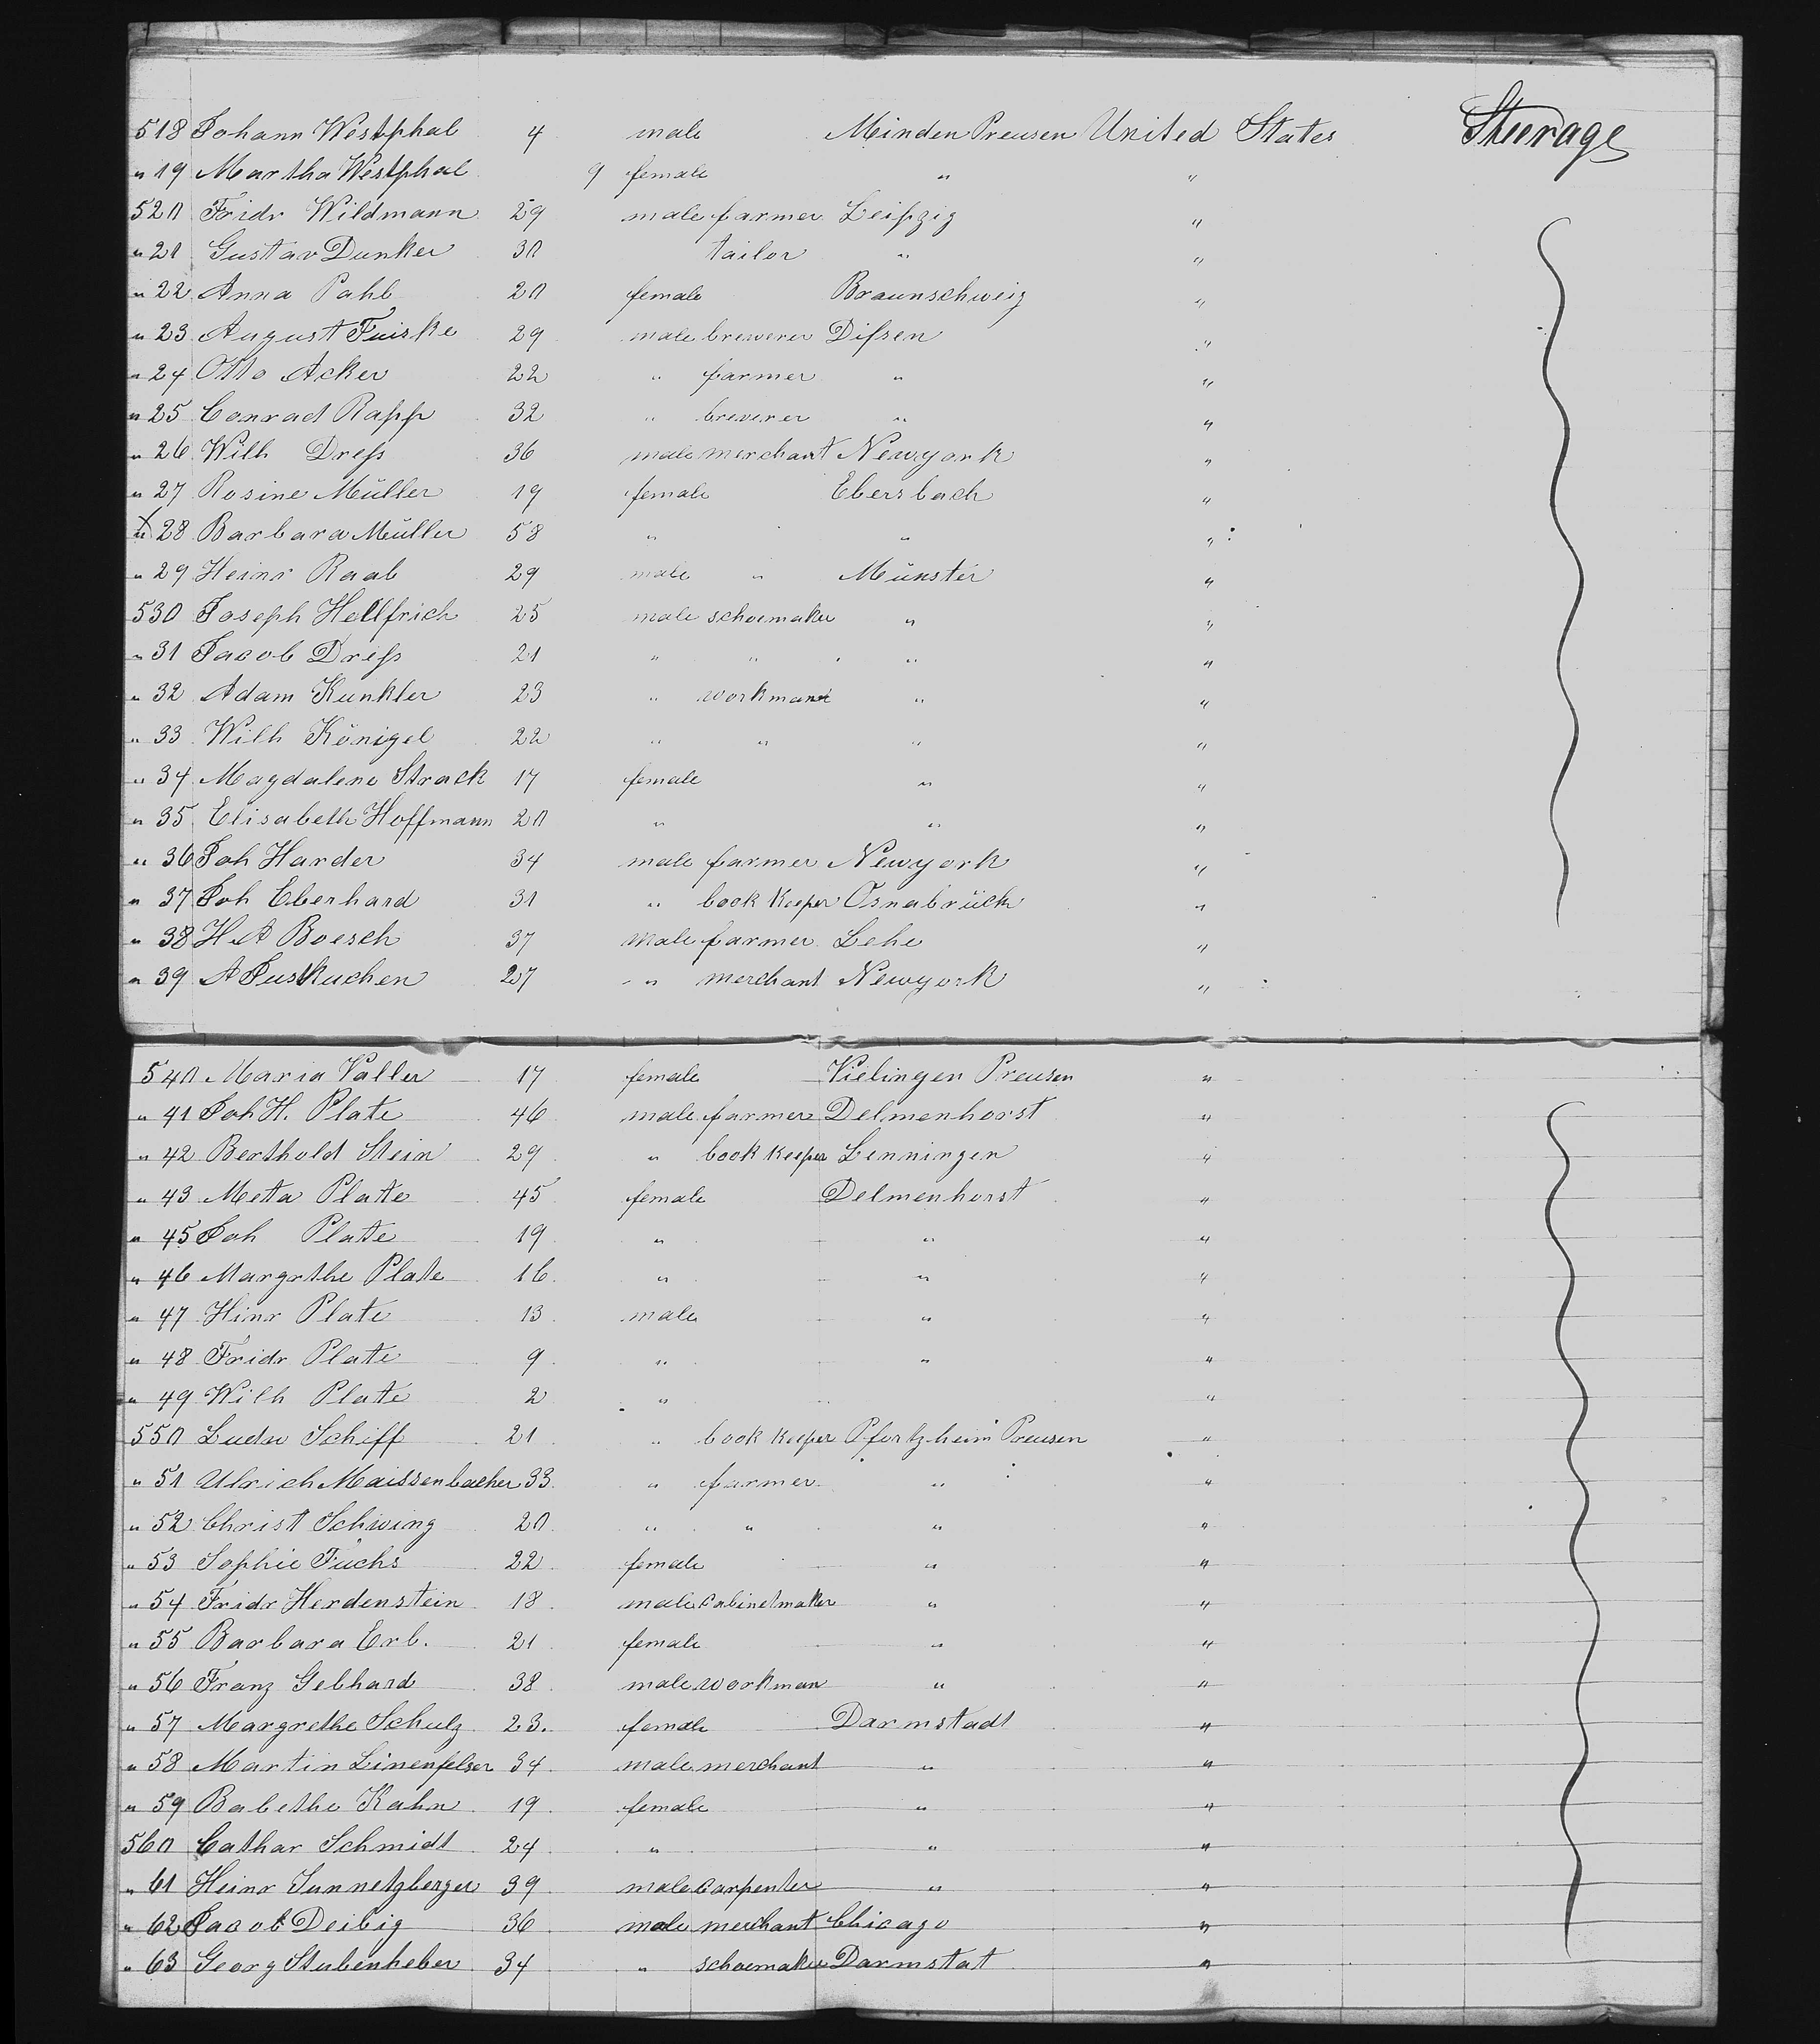 518 Johann Westphal 4 male Minden Preusen United States Steerage
" 19 Martha Westphal 9 female " "
520 Fridr Wildmann 29 male farmer Leipzig "
" 21 Gustav Dunker 30 tailor " "
" 22 Anna Pahl 20 female Braunschweig "
" 23 August Fuiske 29 male brewerer Difsen "
" 24 Otto Acker 22 " farmer " "
" 25 Conrad Rapp 32 " brewerer " "
" 26 Wilh Drefs 36 male merchant Newyork "
" 27 Rosine Müller 19 female Ebersbach "
X " 28 Barbara Müller 58 " " "
" 29 Heinr Raab 29 male " Münster "
530 Joseph Hellfrich 25 male schoemaker " "
" 31 Jacob Drefs 21 " " " "
" 32 Adam Kunkler 23 " workman " "
" 33 Wilh Königel 22 " " " "
" 34 Magdalene Strack 17 female " "
" 35 Elisabeth Hoffmann 20 " " "
" 36 Joh Harder 34 male farmer Newyork "
" 37 Joh Eberhard 31 " book keeper Osnabrück "
" 38 H A Boesch 37 male farmer Lehe "
" 39 A Juskuchen 27 " merchant Newyork "
540 Maria Valler 17 female Vielingen Preusen "
" 41 Joh H. Plate 46 male farmer Delmenhorst "
" 42 Berthold Stein 29 " book keeper Lenningen "
" 43 Meta Plate 45 female Delmenhorst "
" 45 Joh Plate 19 " " "
" 46 Margrthe Plate 16 " " "
" 47 Hinr Plate 13 male " "
" 48 Fridr Plate 9 " " "
" 49 Wilh Plate 2 " "
550 Ludw Schiff 21 " book keeper Pfortzheim Preusen "
" 51 Ulrich Maissenbacher 33 " farmer " "
" 52 Christ Schwing 20 " " " "
" 53 Sophie Fuchs 22 female " "
" 54 Fridr Herdenstein 18 male cabinetmaker " "
" 55 Barbara Erb. 21 female " "
" 56 Franz Gebhard 38 male workman " "
" 57 Margrethe Schulz 23. female Darmstadt "
" 58 Martin Linenfelser 34 male merchant " "
" 59 Babethe Kahn 19 female " "
560 Cathar Schmidt 24 " " "
" 61 Heinr Sunnetzberger 39 male carpenter " "
" 62 Jacob Deibig 36 male merchant Chicago "
" 63 Georg Stubenheber 34 " schoemaker Darmstat "